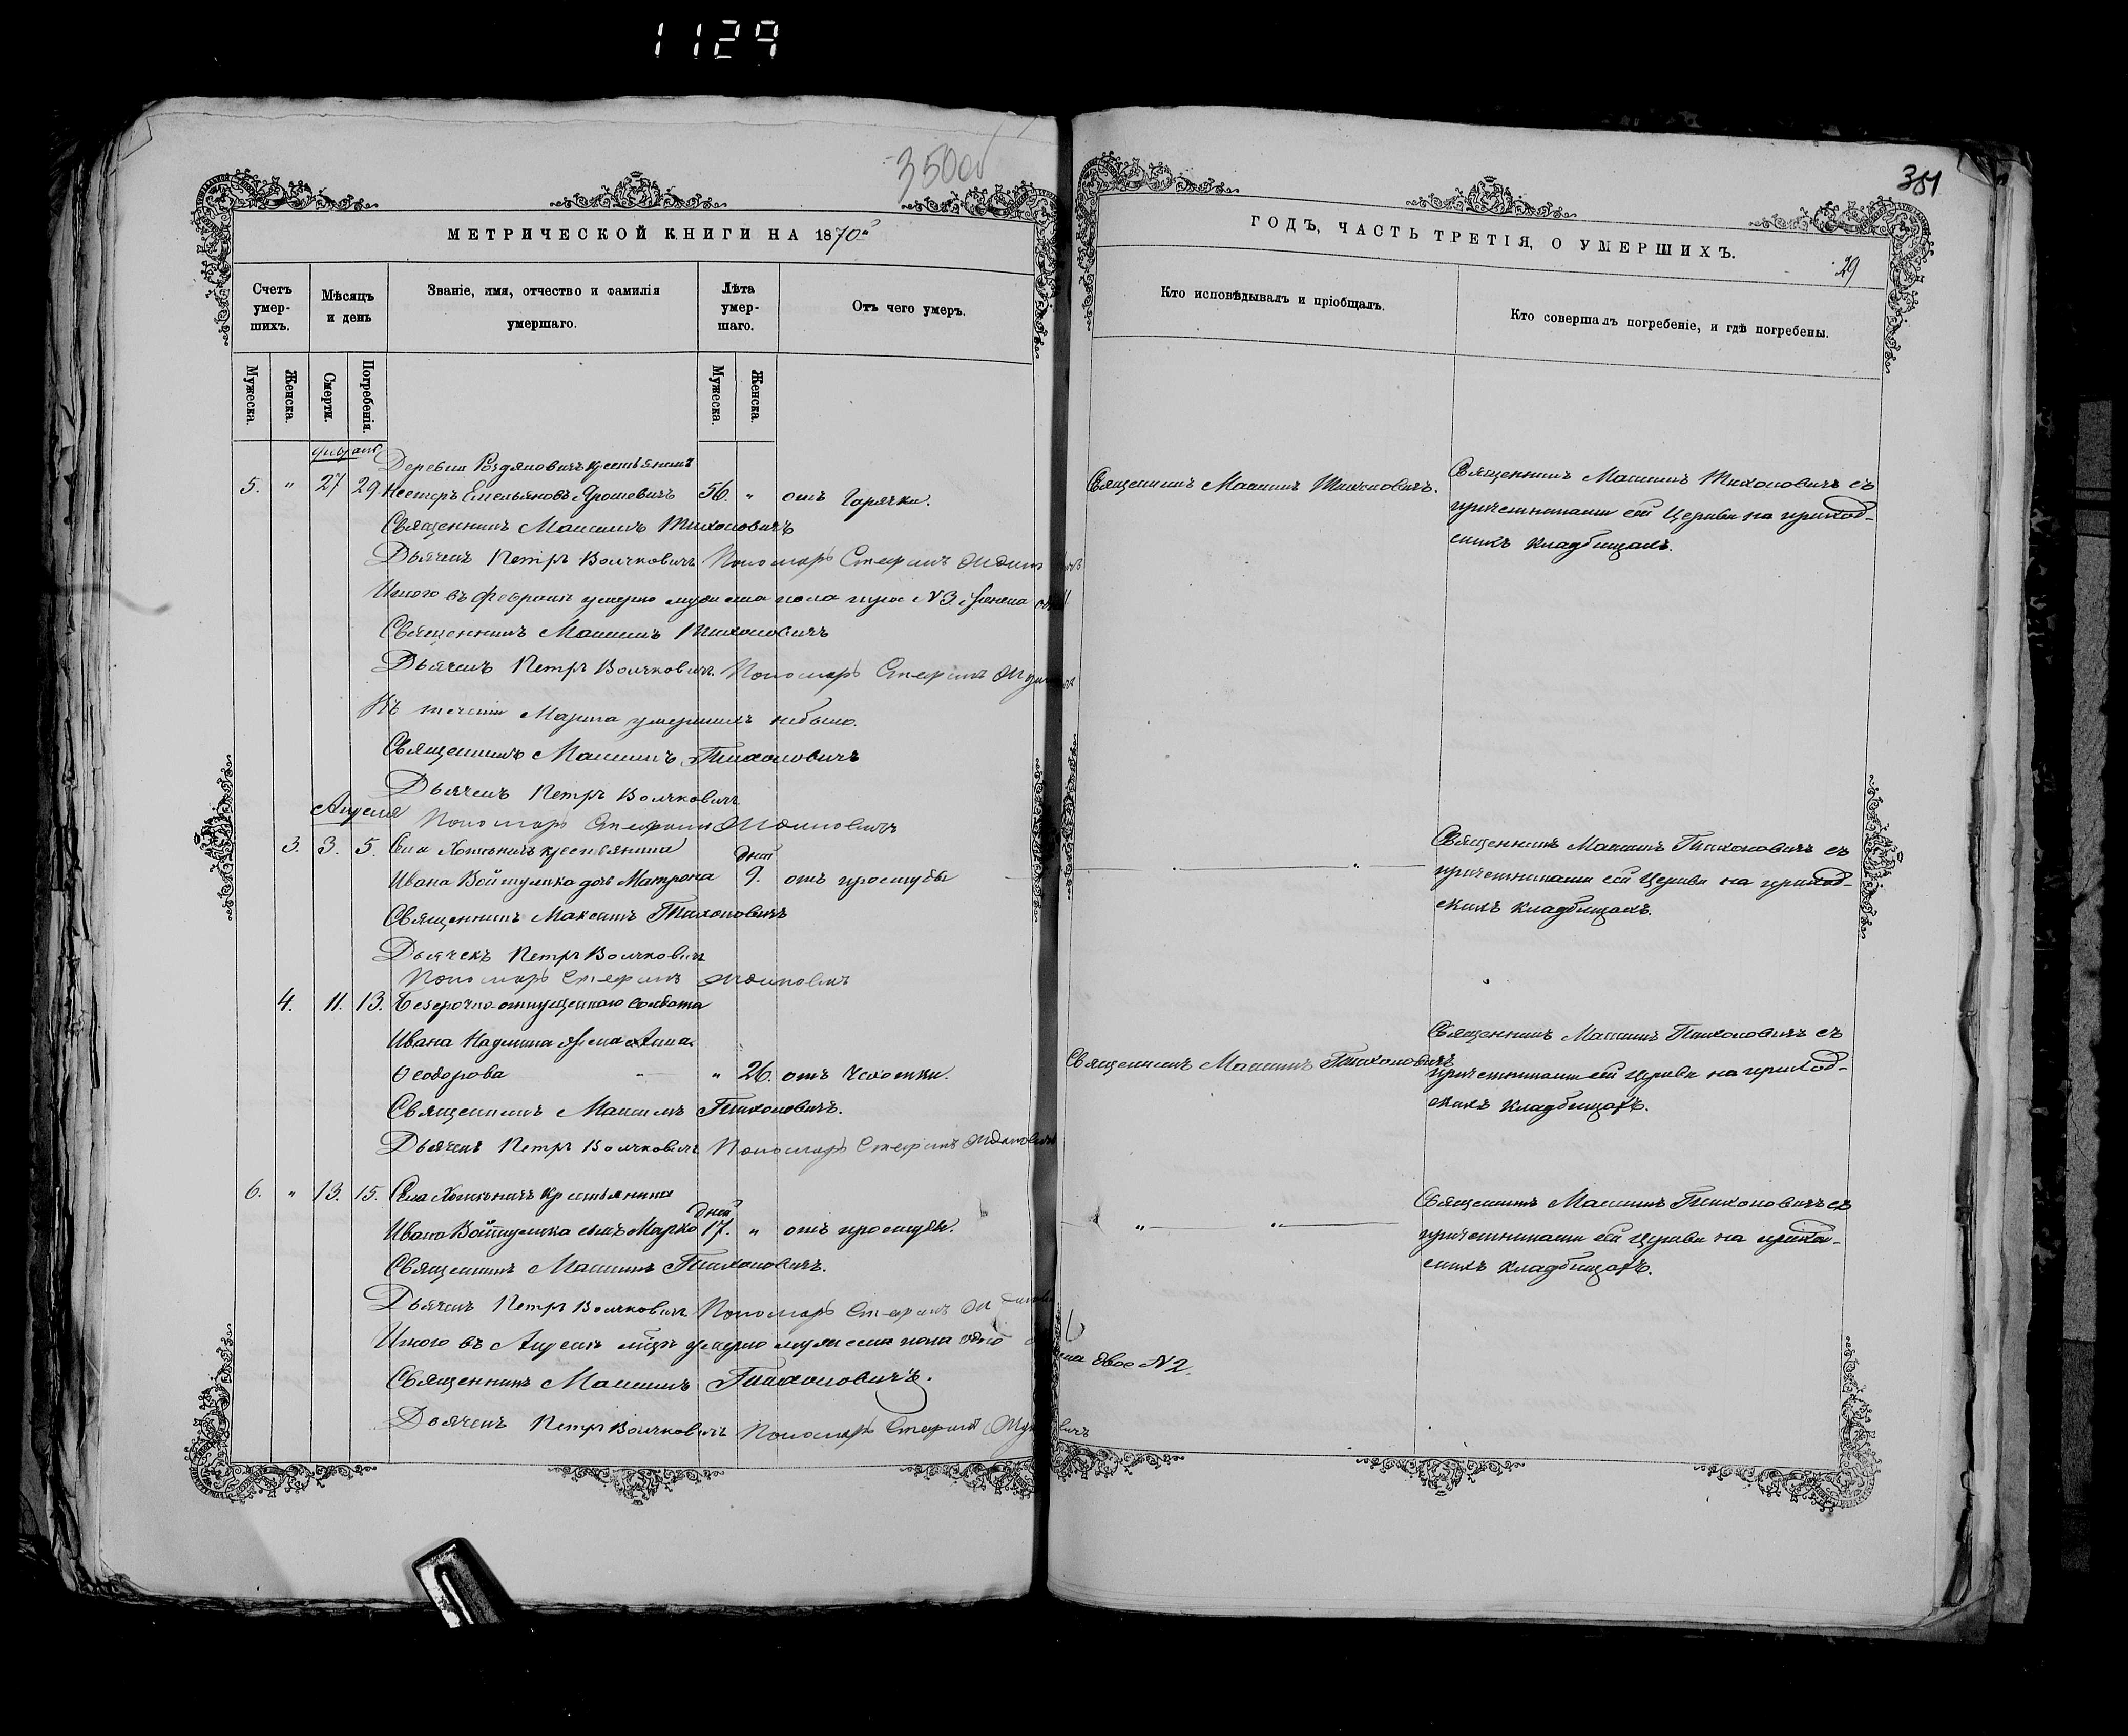 1129
350об
351
МЕТРИЧЕСКОЙ КНИГИ НА 1870й
ГОДЪ, ЧАСТЬ ТРЕТІЯ, О УМЕРШИХЪ.
29
Счетъ умер-шихъ.
Мѣсяцъ и день
Званіе, имя, отчество и фамилія умершаго.
Лѣта умер-шаго.
Отъ чего умеръ.
Кто исповѣдывалъ и пріобщалъ.
Кто совершалъ погребеніе, и гдѣ погребены.
Мужеска.
Женска.
Смерти.
Погребенія.
Мужеска.
Женска.
Деревни крестьянинъ
5. " 27 29 Несторъ Емельяновъ Ярошевичъ 56. " отъ Горячки.
Священникъ Максимъ Тихоновичъ.
Священникъ Максимъ Тихоновичъ съ
причетниками сей Церкви на приход-
скихъ кладбищахъ.
Священникъ Максимъ Тихоновичъ
Дьячекъ Петръ Волчковичъ Пономарь Стефанъ
Итого въ Февралѣ умерло мужеска пола трое N3 женска
Священникъ Максимъ Тихоновичъ
Дьячекъ Петръ Волчковичъ. Пономарь Стефанъ
Въ теченіи Марта умершихъ небыло.
Священникъ Максимъ Тихоновичъ
Дьячекъ Петръ Волчковичъ
Апреля
Пономарь Стефанъ Ждановичъ
3. 3. 5. Села крестьянина
дней
Ивана Войтулика дочь Матрона 9. отъ простуды
Священникъ Максимъ Тихоновичъ съ
причетниками сей Церкви на приход-
скихъ кладбищахъ.
Священникъ Максимъ Тихоновичъ
Дьячекъ Петръ Волчковичъ
Пономарь Стефанъ Ждановичъ
4. 11. 13. Безсрочно-отпущеннаго солдата
Ивана жена Анна
Ѳеодорова " 26. отъ Чахотки.
Священникъ Максимъ Тихоновичъ
Священникъ Максимъ Тихоновичъ съ
причетниками сей Церкви на приход-
скихъ кладбищахъ.
Священникъ Максимъ Тихоновичъ.
Дьячекъ Петръ Волчковичъ Пономарь Стефанъ Ждановичъ
6. " 13. 15. Села крестьянина
дней
Ивана Войтулика сынъ Марко 17. " отъ простуды.
" "
Священникъ Максимъ Тихоновичъ съ
причетниками сей Церкви на приход-
скихъ кладбищахъ.
Священникъ Максимъ Тихоновичъ.
Дьячекъ Петръ Волчковичъ Пономарь Стефанъ
Итого въ Апрелѣ мцѣ умерло мужеска пола одно
двое N2.
Священникъ Максимъ Тихоновичъ.
Дьячекъ Петръ Волчковичъ Пономарь Стефанъ